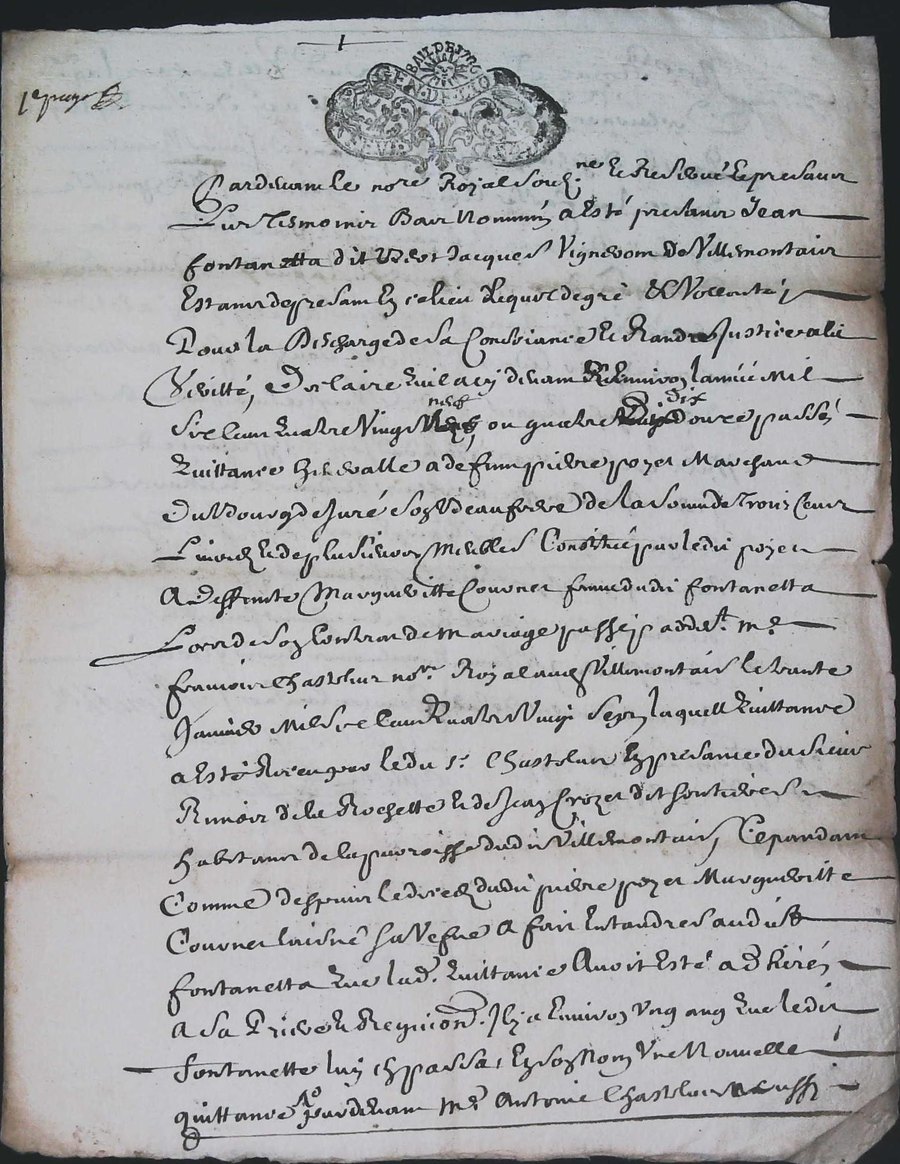 1
BAIL DE 1706
GEN. DE LIO
1e piece
Pardevant le nore Royal soubz.ne Et Reservé Et presant
Les Tesmoins Bas Nommés a Esté presant Jean
fontanetta dit Jacques Vigneron De Villemontais
Estant depresant En ce lieu Lequel de gré & Vollonté
Pour la Descharge de sa Consiance Et Randre Justice a la
Veritté, Declaire Quil a cy devant Et Environ Lannée Mil
Six Cent Quatre Vingt neuf, ou quatre Vingt dix passé
Quittance Generalle a deffunt pierre poyet Marchand
Du Bourg de Juré son Beaufrere De la Somme de Trois Cent
Livres Et de plusieurs Meubles Constitué par ledit poyet
A Deffunte Margueritte Cournet femme dudit fontanetta
Lors de son Contrat de Mariage passé pardevt. Me
francois Chasteluz nore. Royal audit Villemontais le trante
Janvier Mil Six Cent Quatre Vingt Sept, laquelle Quittance
a Esté Receu par ledit Sr. Chasteluz En presance du Sieur
de la Rochette Et de Jean Crozet dit
habitant de la parroisse dudit Villemontais, Cepandant
Comme despuis le deces dudit pierre poyet Marguerite
Cournet laisné sa Vefve A fait Entandre audit
fontanetta Que lad. Quittance Avoit Esté adhirés
A sa Priere Et Requision. Il y a Environ Ung ang Que ledit
fontanette luy En passa En son Nom Une Nouvelle
quittance pardevant Me. Antoine Chasteluz aussi